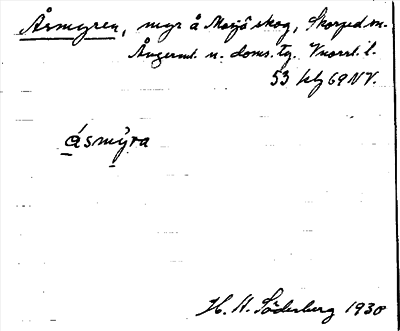 Åsmyren, myr å Myrjå skog, Skorped sn.
Ångerml. n. doms. tg. Vnorrl. l.
53 kbg 69 NV.
ásmýra
H. H. Söderberg 1930